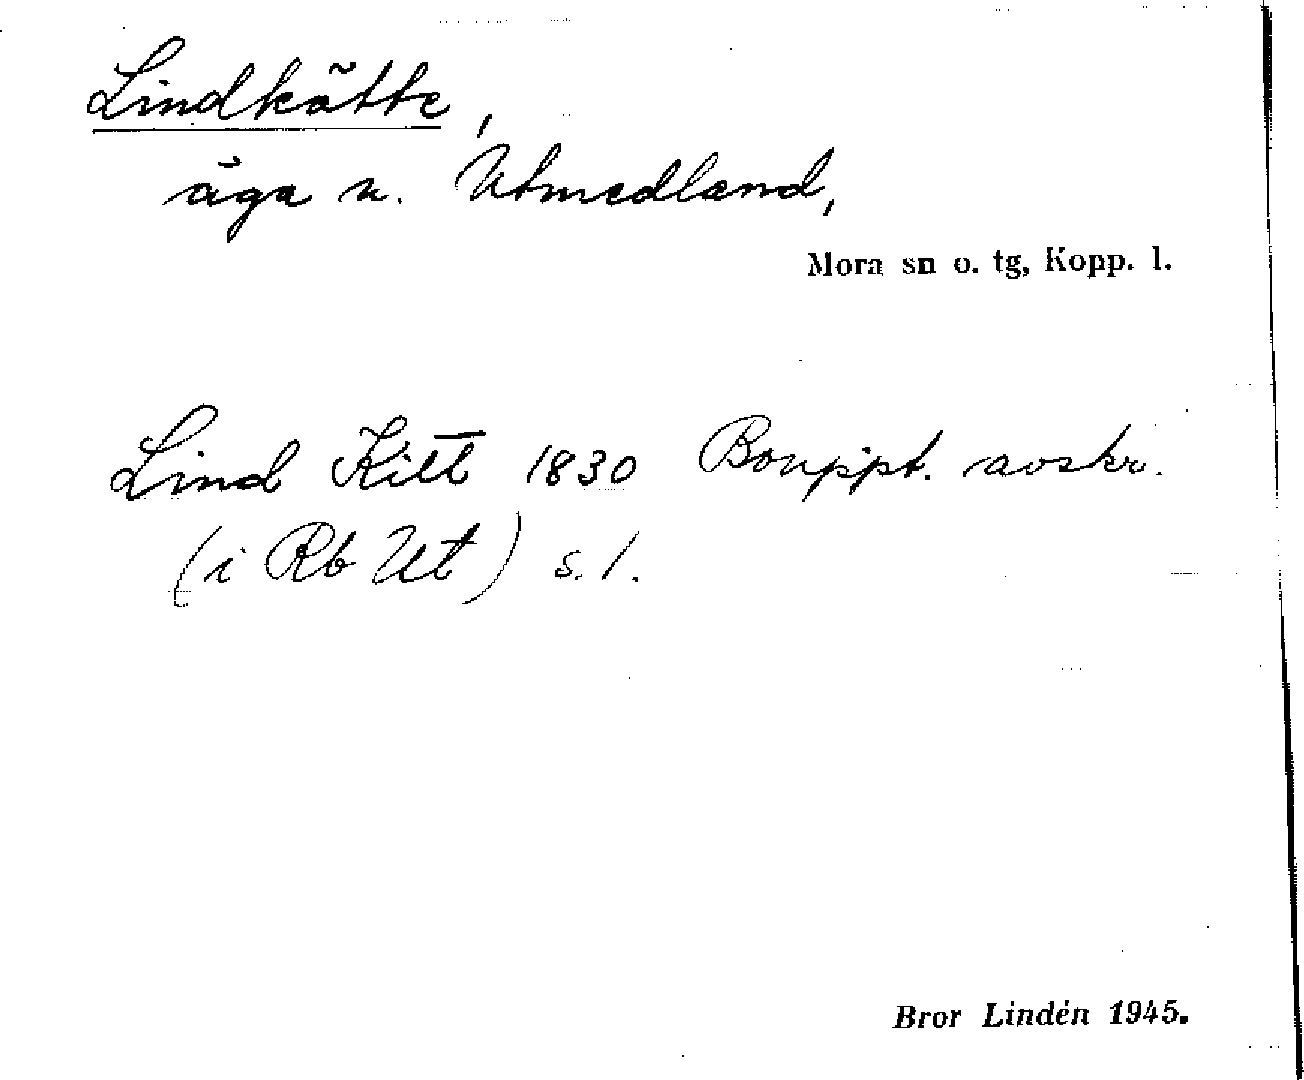 Lindkätte,
äga u. Utmedland,
Mora sn o. tg, Kopp. l.
Lind Kitt 1830 Bouppt. avskr.
(i Rb Ut) s. 1.
Bror Lindén 1945.